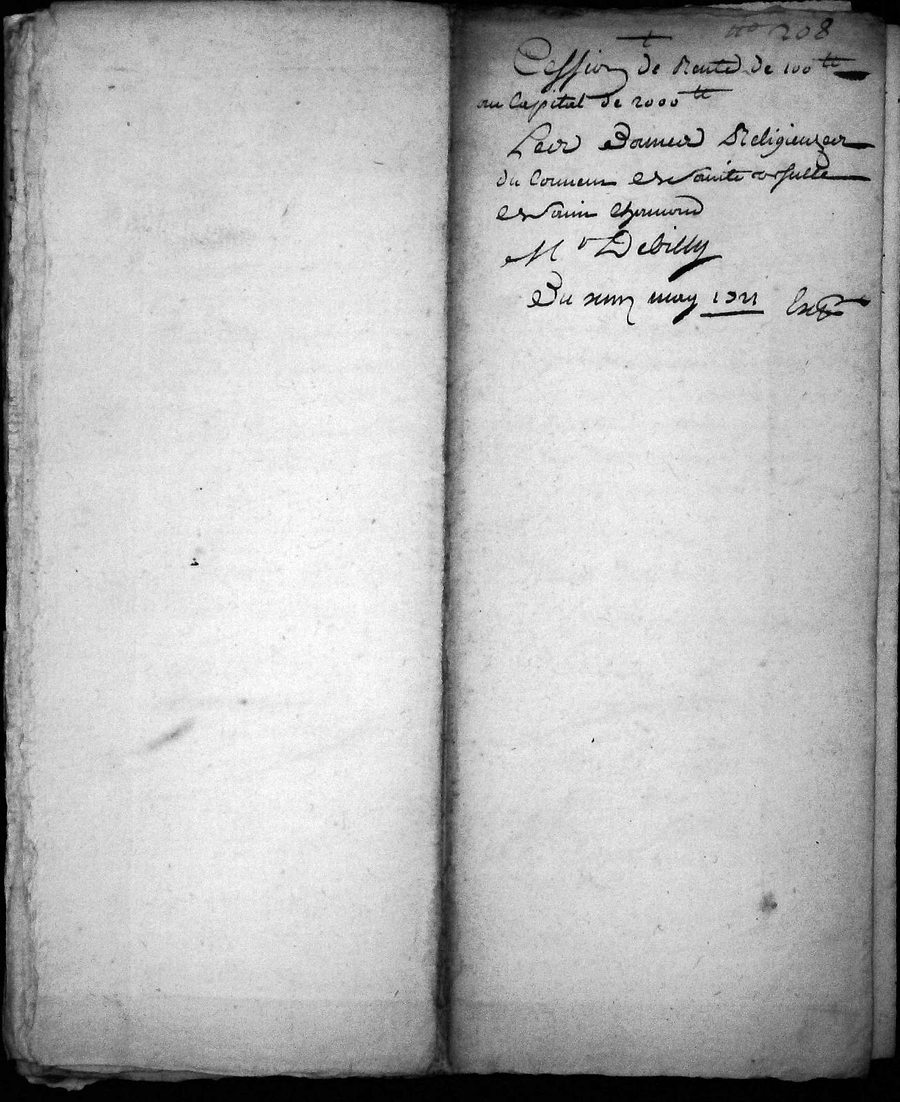 no 208
Cession de Rente de 100 tt
au Capital de 2000 tt
Les Dames Religieuses
du Couuen de Sainte vrsulle
de Sain chamond
Mr Debilly
Du may 1721